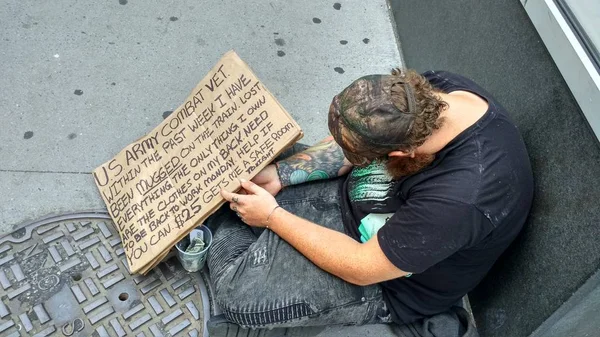 US ARMY COMBAT VET.
WITHIN THE PAST WEEK I HAVE
BEEN MUGGED ON THE TRAIN LOST
EVERYTHING THE ONLY THING I OWN
ARE THE CLOTHES ON MY BACK NEED
TO BE BACK TO WORK MONDAY. HELP IF
YOU CAN $25 GETS ME A SAFE ROOM
TONIGHT